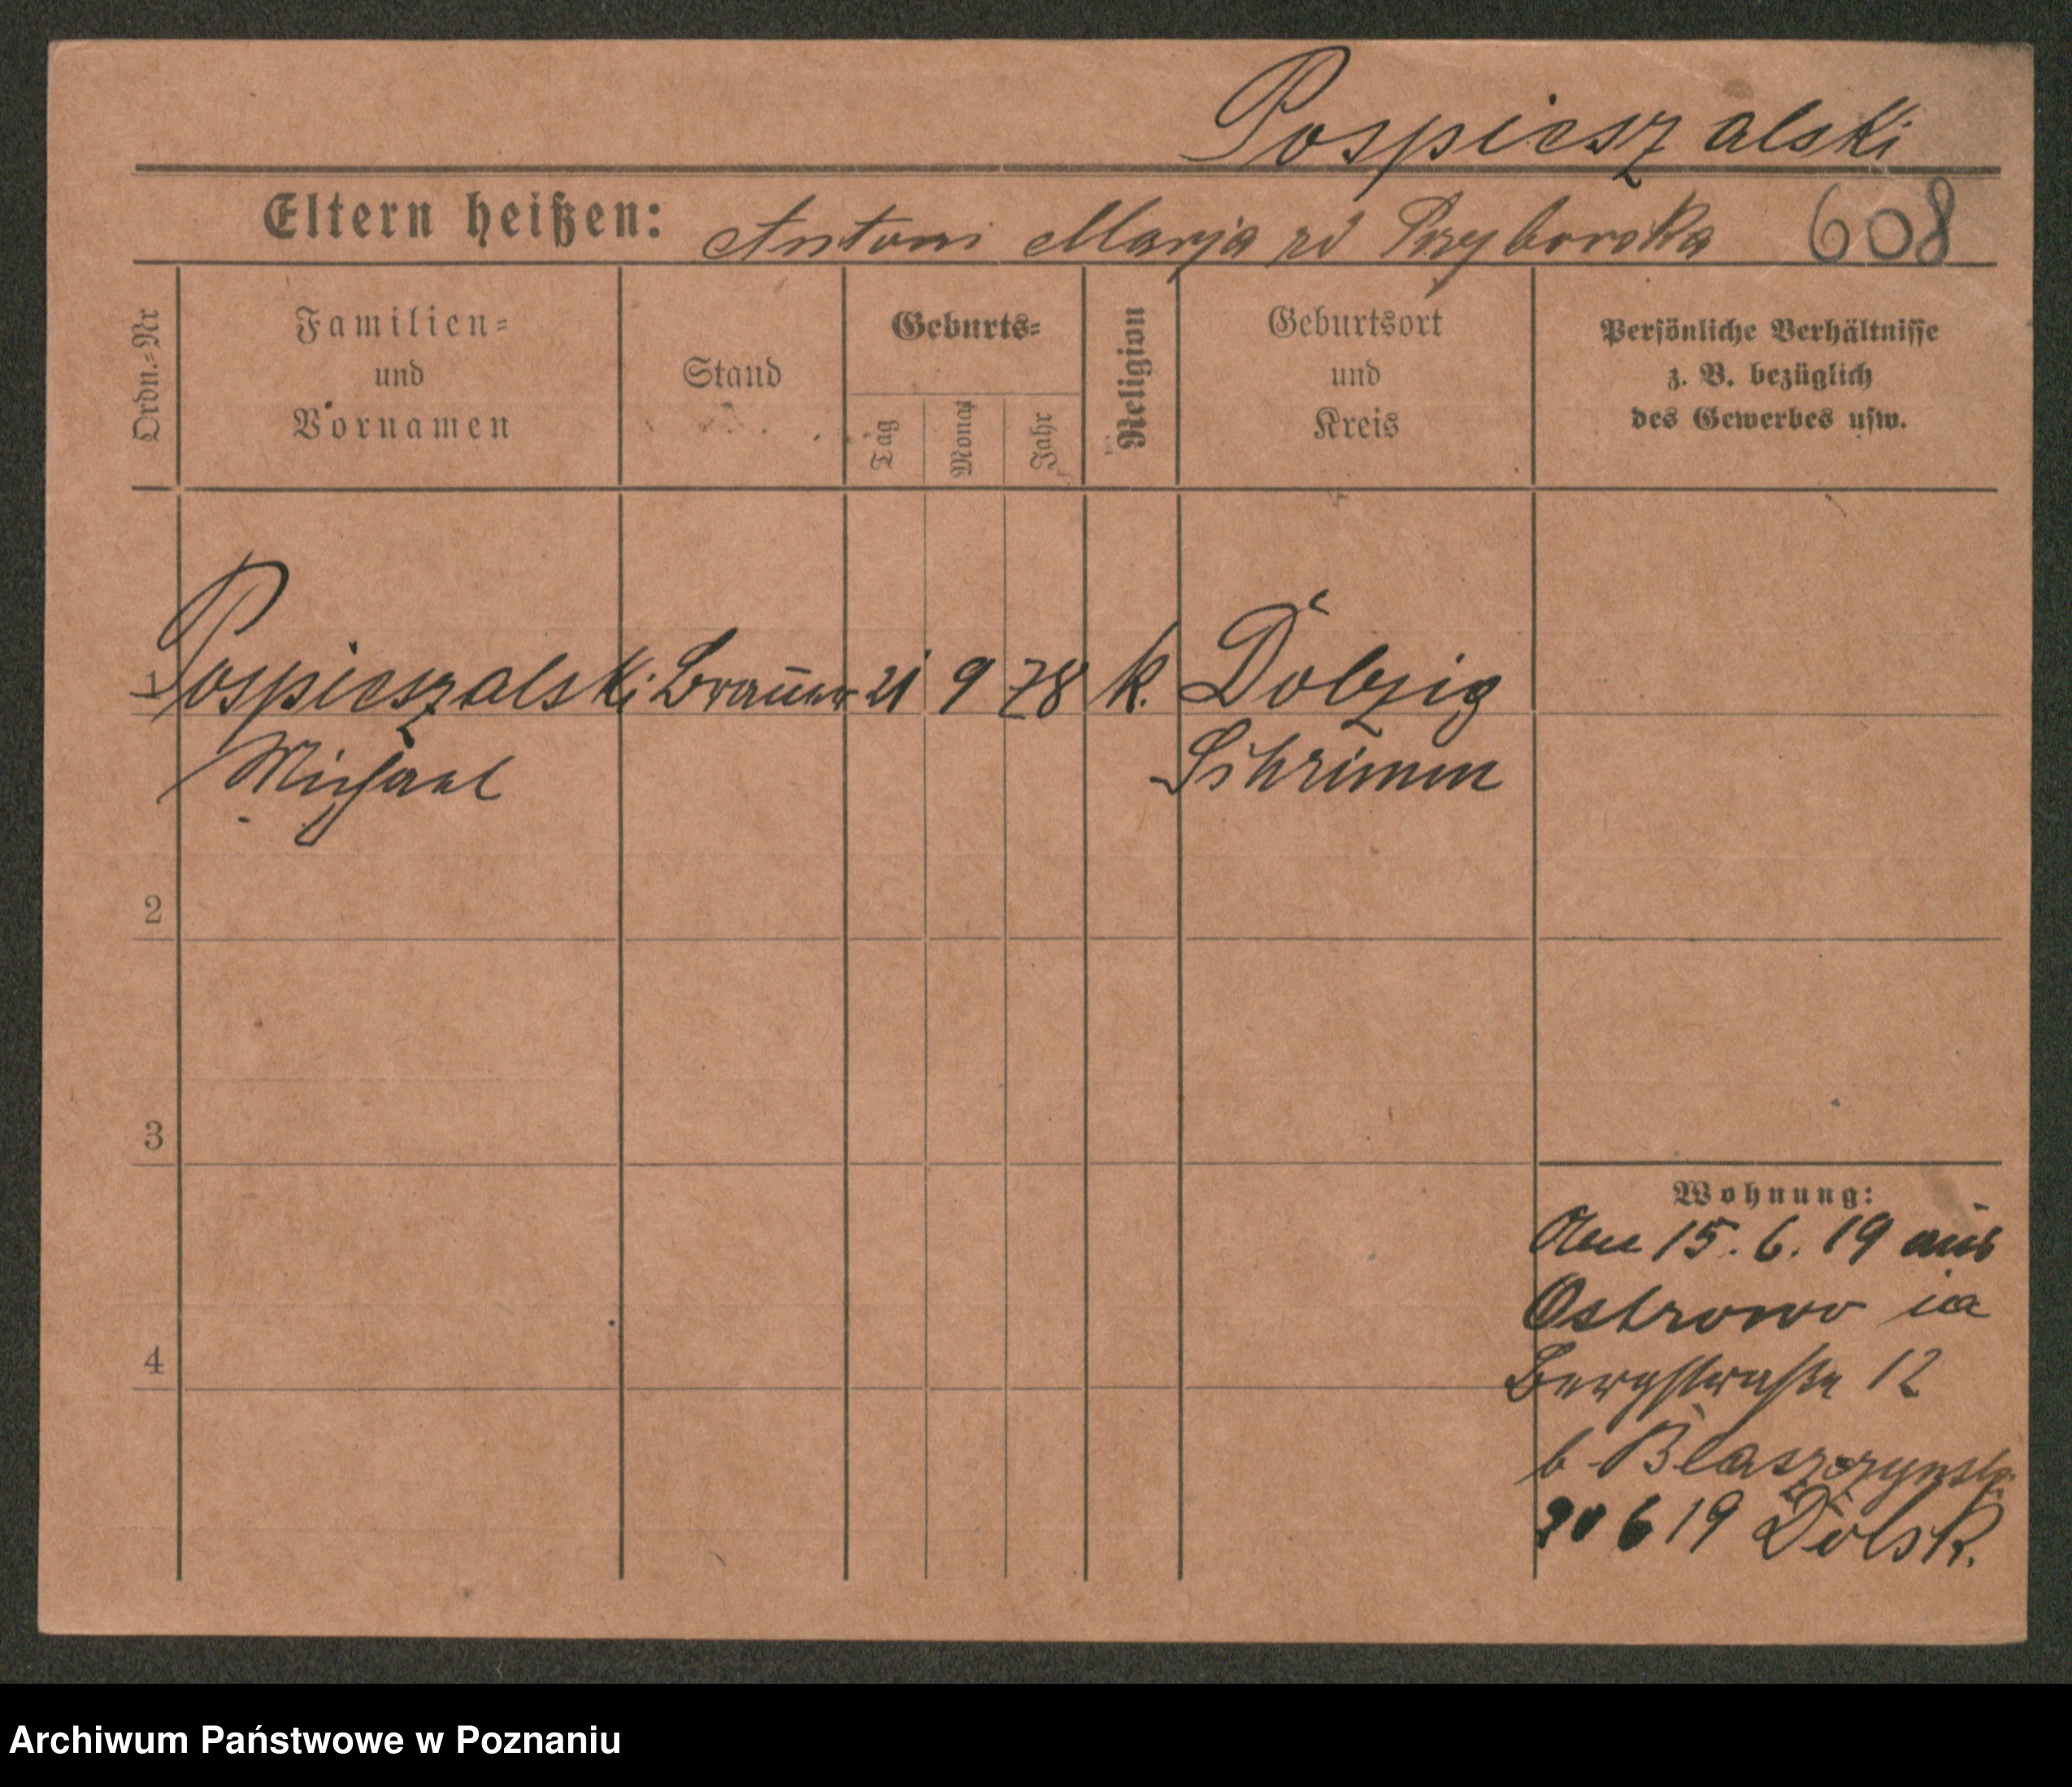 Pospieszalski
Eltern heißen: Antoni Marja zd Przyborska 608
Ordn.=Nr
Familien=
und
Vornamen
Stand
Geburts=
Tag
Monat
Jahr
Religion
Geburtsort
und
Kreis
Persönliche Verhältnisse
z. B. bezüglich
des Gewerbes usw.
1 Pospieszalski Brauer 21 9 78 k. Dolzig
Michael Schrimm
2
3
4
Wohnung:
Den 15. 6. 19 aus
Ostrowo in
Bergstraße 12
b Blaszczynski
20 6 19 Dolsk.
Archiwum Państwowe w Poznaniu